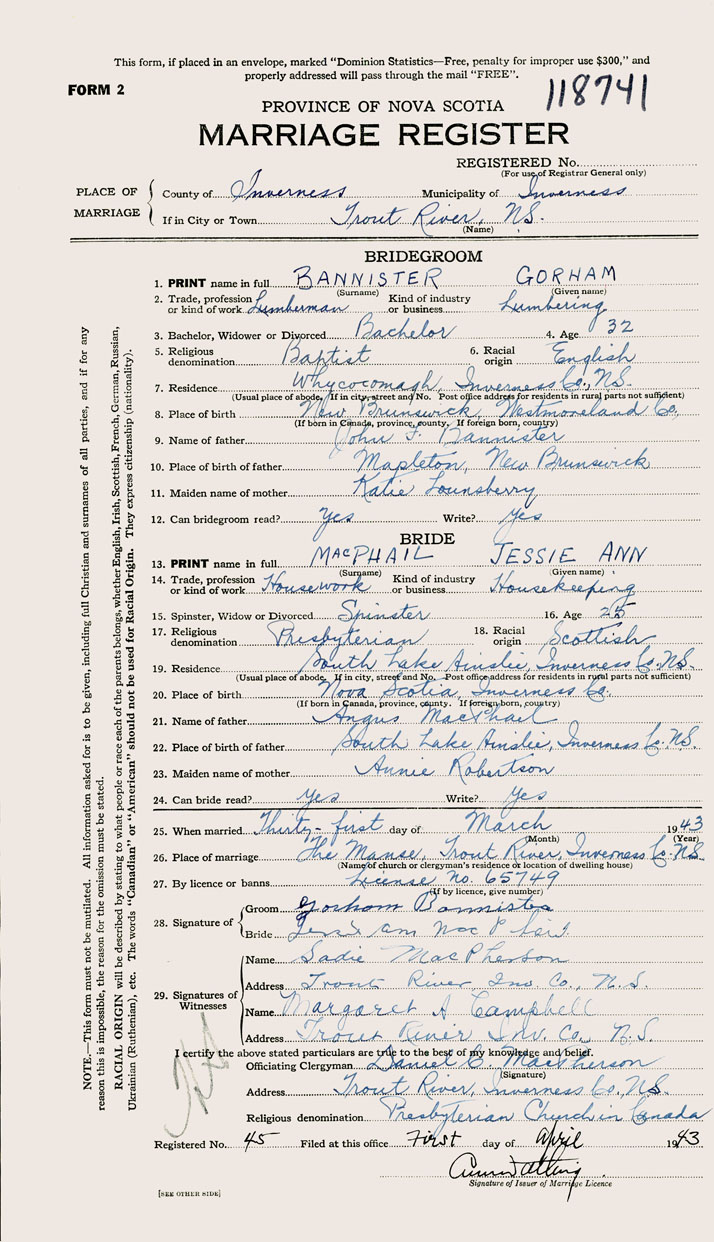 This form, if placed in an envelope, marked "Dominion Statistics—Free, penalty for improper use $300," and
properly addressed will pass through the mail "FREE".
FORM 2
118741
PROVINCE OF NOVA SCOTIA
MARRIAGE REGISTER
REGISTERED No.
(For use of Registrar General only)
PLACE OF MARRIAGE
County of Inverness Municipality of Inverness
If in City or Town Trout River, N.S.
(Name)
BRIDEGROOM
1. PRINT name in full BANNISTER GORHAM
(Surname) (Given name)
2. Trade, profession or kind of work Lumberman Kind of industry or business Lumbering
3. Bachelor, Widower or Divorced Bachelor 4. Age 32
5. Religious denomination Baptist 6. Racial origin English
7. Residence Whycocomagh, Inverness Co., N.S.
(Usual place of abode. If in city, street and No. Post office address for residents in rural parts not sufficient)
8. Place of birth New Brunswick, Westmoreland Co,
(If born in Canada, province, county. If foreign born, country)
9. Name of father John F. Bannister
10. Place of birth of father Mapleton, New Brunswick
11. Maiden name of mother Katie Lounsberry
12. Can bridegroom read? Yes Write? Yes
BRIDE
13. PRINT name in full MACPHAIL JESSIE ANN
(Surname) (Given name)
14. Trade, profession or kind of work Housework Kind of industry or business Housekeeping
15. Spinster, Widow or Divorced Spinster 16. Age 25
17. Religious denomination Presbyterian 18. Racial origin Scottish
19. Residence South Lake Ainslie, Inverness Co. N.S.
(Usual place of abode. If in city, street and No. Post office address for residents in rural parts not sufficient)
20. Place of birth Nova Scotia, Inverness Co.
(If born in Canada, province, county. If foreign born, country)
21. Name of father Angus MacPhail
22. Place of birth of father South Lake Ainslie, Inverness Co. N.S.
23. Maiden name of mother Annie Robertson
24. Can bride read? Yes Write? Yes
25. When married Thirty-first day of March 1943
(Month) (Year)
26. Place of marriage The Manse, Trout River, Inverness Co. N.S.
(Name of church or clergyman's residence or location of dwelling house)
27. By licence or banns License no. 65749
(If by licence, give number)
28. Signature of
Groom Gorham Bannister
Bride
29. Signatures of Witnesses
Name Sadie MacPherson
Address Trout River Inv. Co., N.S.
Name Margaret A Campbell
Address Trout River Inv. Co., N.S.
I certify the above stated particulars are true to the best of my knowledge and belief.
Officiating Clergyman Daniel C. MacPherson
(Signature)
Address Trout River, Inverness Co., N.S.
Religious denomination Presbyterian Church in Canada
Registered No. 45 Filed at this office First day of April 1943
Signature of Issuer of Marriage Licence
[SEE OTHER SIDE]
NOTE.—This form must not be mutilated. All information asked for is to be given, including full Christian and surnames of all parties, and if for any
reason this is impossible, the reason for the omission must be stated.
RACIAL ORIGIN will be described by stating to what people or race each of the parents belongs, whether English, Irish, Scottish, French, German, Russian,
Ukrainian (Ruthenian), etc. The words "Canadian" or "American" should not be used for Racial Origin. They express citizenship (nationality).